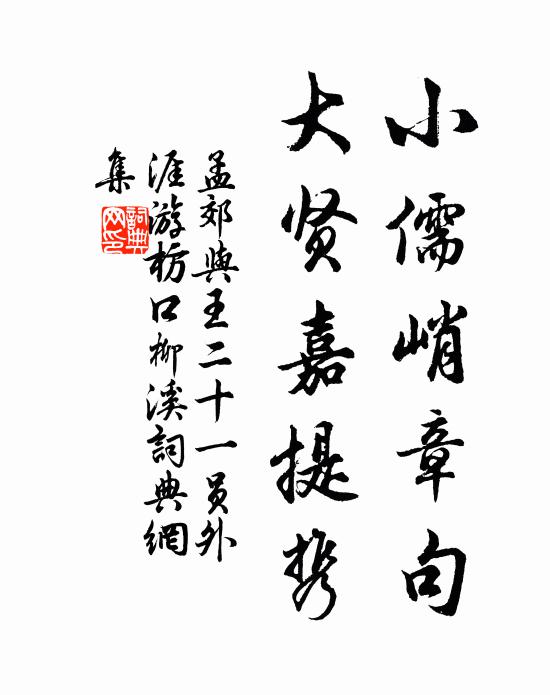 小儒峭章句
大贤嘉提携
孟郊與王二十一员外
涯游枋口柳溪詞典網
集
詞典网印